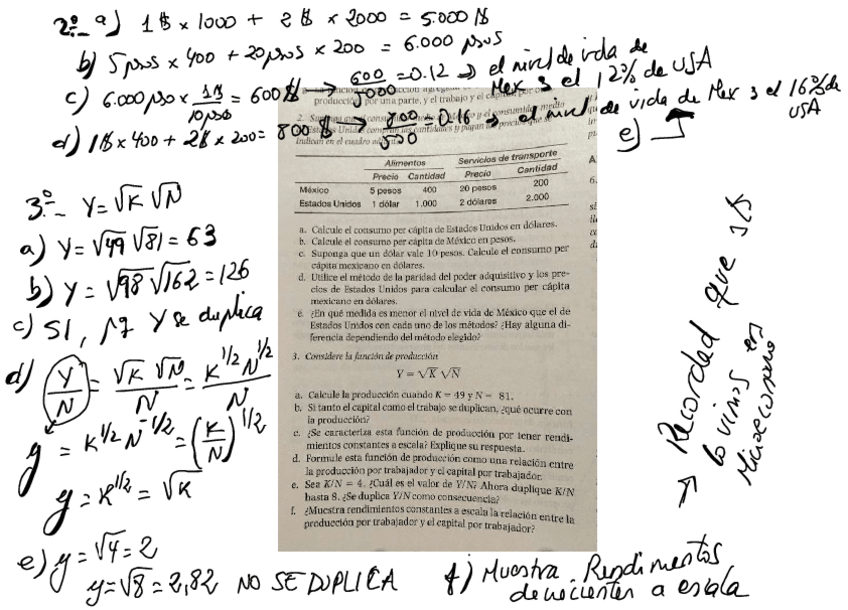 2º.- a) 1$ x 1000 + 2$ x 2000 = 5.000 $
b) 5 pesos x 400 + 20 pesos x 200 = 6.000 pesos
c) 6.000 peso x 1$/10 pesos = 600 $ → 600/5000 = 0.12 → el nivel de vida de Mex es el 12% de USA
d) 1$ x 400 + 2$ x 200 = 800 $ → 800/5000 = 0.16 → el nivel de vida de Mex es el 16% de USA
e)
producción, por una parte, y el trabajo y el capital por
2.
indican en el cuadro
Alimentos Servicios de transporte
Precio Cantidad Precio Cantidad
México 5 pesos 400 20 pesos 200
Estados Unidos 1 dólar 1.000 2 dólares 2.000
a. Calcule el consumo per cápita de Estados Unidos en dólares.
b. Calcule el consumo per cápita de México en pesos.
c. Suponga que un dólar vale 10 pesos. Calcule el consumo per
cápita mexicano en dólares.
d. Utilice el método de la paridad del poder adquisitivo y los pre-
cios de Estados Unidos para calcular el consumo per cápita
mexicano en dólares.
e. ¿En qué medida es menor el nivel de vida de México que el de
Estados Unidos con cada uno de los métodos? ¿Hay alguna di-
ferencia dependiendo del método elegido?
3. Considere la función de producción
Y = √K √N
a. Calcule la producción cuando K = 49 y N = 81.
b. Si tanto el capital como el trabajo se duplican, ¿qué ocurre con
la producción?
c. ¿Se caracteriza esta función de producción por tener rendi-
mientos constantes a escala? Explique su respuesta.
d. Formule esta función de producción como una relación entre
la producción por trabajador y el capital por trabajador.
e. Sea K/N = 4. ¿Cuál es el valor de Y/N? Ahora duplique K/N
hasta 8. ¿Se duplica Y/N como consecuencia?
f. ¿Muestra rendimientos constantes a escala la relación entre la
producción por trabajador y el capital por trabajador?
3º.- Y = √K √N
a) Y = √49 √81 = 63
b) Y = √98 √162 = 126
c) SI, pq Y se duplica
d) Y/N = √K √N/N = K^1/2 N^1/2/N
y = K^1/2 N^-1/2 = (K/N)^1/2
y = K^1/2 = √K
e) y = √4 = 2
y = √8 = 2,82 NO SE DUPLICA
f) Muestra Rendimientos decrecientes a escala
→ Recordad que
lo vimos en
Microeconomia